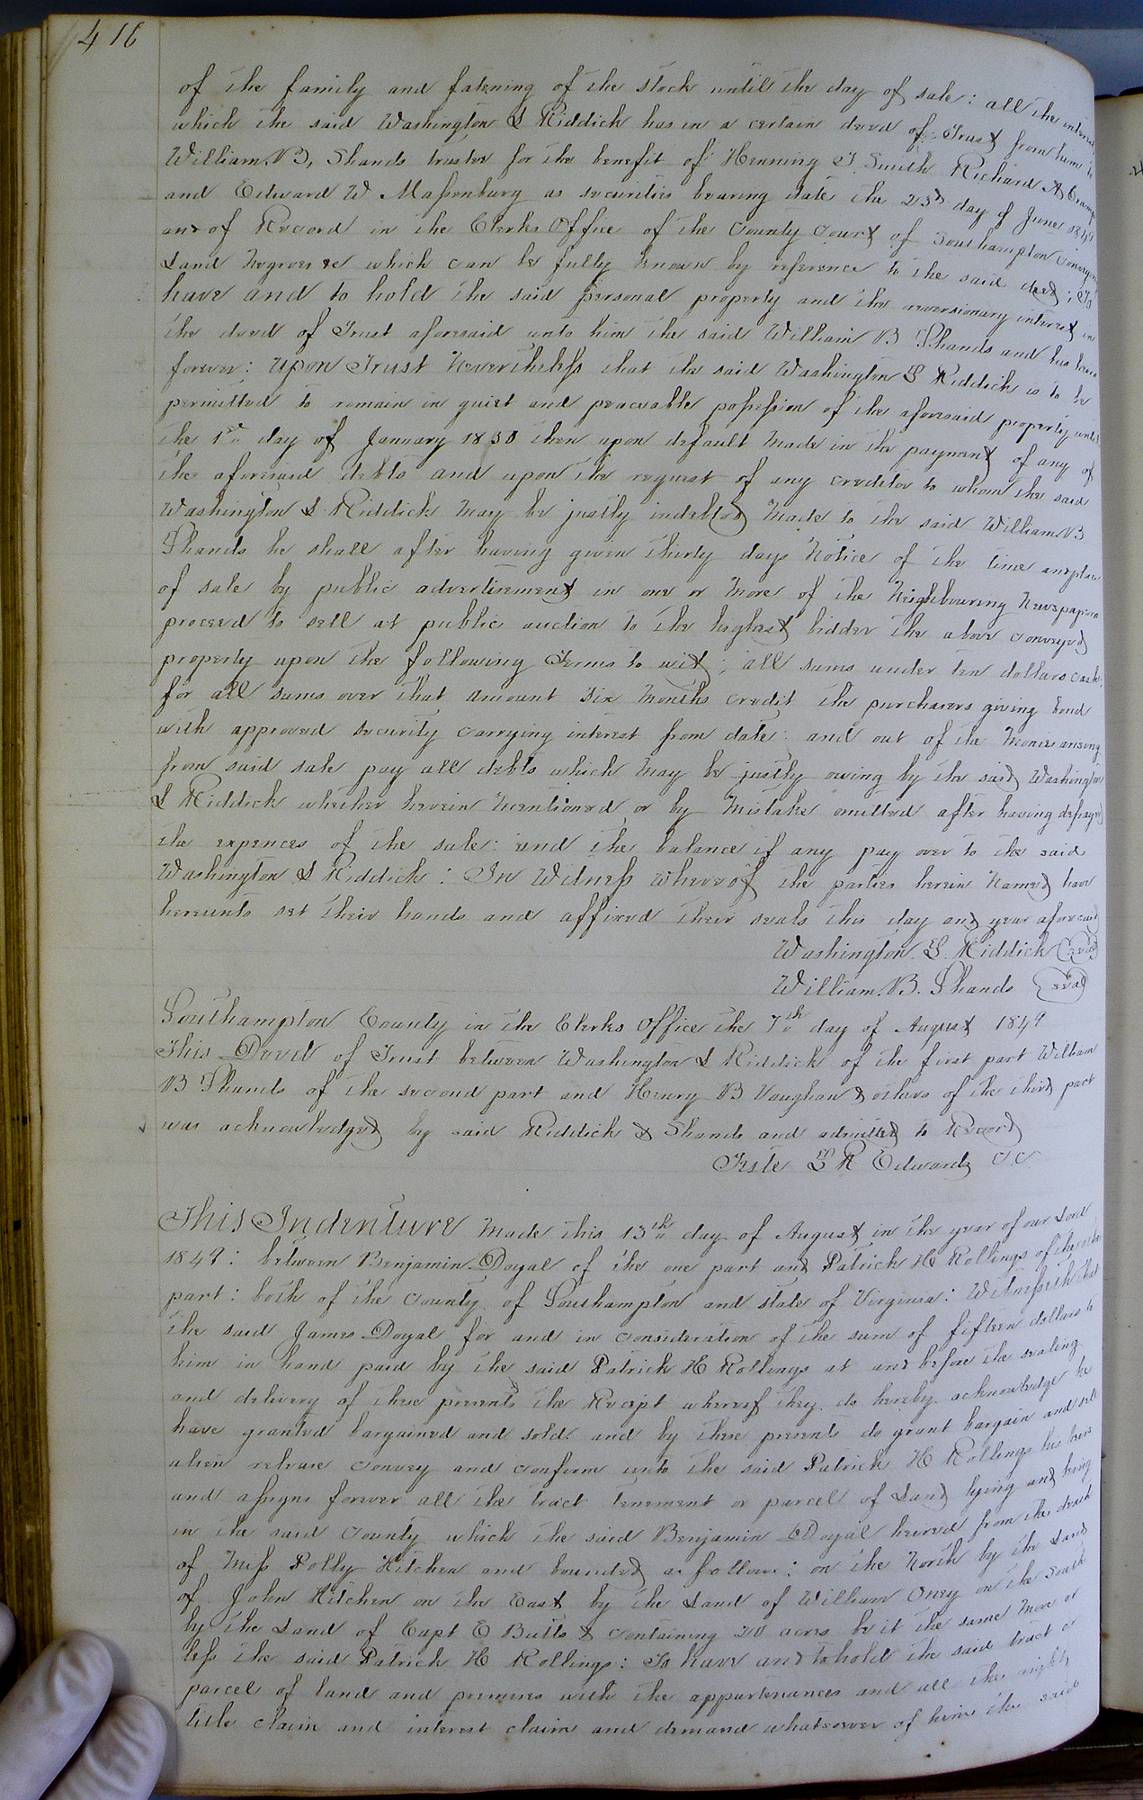 416
of the family and fatening of the stock until the day of sale: all the interest
which the said Washington S Riddick has in a certain deed of Trust from him to
William B. Shands trustee for the benefit of Henning T Smith Richard A
and Edward W Massenburg as securities bearing date the 23d day of June 1849
and of Record in the Clerks Office of the County Court of Southampton conveying
Land Negroes &c which can be fully known by reference to the said deed; To
have and to hold the said personal property and the reversionary interest in
the deed of Trust aforesaid unto him the said William B Shands and his heirs
forever: Upon Trust Nevertheless that the said Washington S Riddick is to be
permitted to remain in quiet and peaceable possession of the aforesaid property until
the 1st day of January 1850 then upon default made in the payment of any of
the aforesaid debts and upon the request of any creditor to whom the said
Washington S Riddick may be justly indebted made to the said William B
Shands he shall after having given thirty days Notice of the time and place
of sale by public advertisement in one or more of the Neighbouring Newspapers
proceed to sell at public auction to the highest bidder the above conveyed
property upon the following Terms to wit; all sums under ten dollars cash
for all sums over that amount six months credit the purchasers giving bond
with approved security carrying interest from date: and out of the monies arising
from said sale pay all debts which may be justly owing by the said Washington
S Riddick whether herein mentioned or by mistake omitted after having defrayed
the expences of the sale: and the balance if any pay over to the said
Washington S Riddick: In Witness whereof the parties herein Named have
hereunto set their hands and affixed their seals this day and year aforesaid
Washington. S. Riddick (seal)
William. B. Shands (seal)
Southampton County in the Clerks Office the 7th day of August 1849
This Deed of Trust between Washington S Riddick of the first part William
B Shands of the second part and Henry B Vaughan & others of the third part
was acknowledged by said Riddick & Shands and admitted to Record
Teste L R Edwards CC
This Indenture Made this 13th day of August in the year of our Lord
1849: between Benjamin Doyal of the one part and Patrick H Rollings of the other
part: both of the County of Southampton and state of Virginia: Witnesseth that
the said James Doyal for and in consideration of the sum of fifteen dollars to
him in hand paid by the said Patrick H Rollings at and before the sealing
and delivery of these presents the Receipt whereof they do hereby acknowledge he
have granted bargained and sold and by these presents do grant bargain and sell
alien release convey and confirm unto the said Patrick H Rollings his heirs
and assigns forever all the tract tenement or parcel of Land lying and being
in the said County which the said Benjamin Doyal heired from the death
of Miss Polly Kitchen and bounded as follows: on the North by the Land
of John Kitchen on the East by the Land of William Oney on the South
by the Land of Capt E Butts & containing 20 acres be it the same more or
less the said Patrick H Rollings: To have and to hold the said tract or
parcel of land and premises with the appurtenances and all the right
title claim and interest claim and demand whatsoever of him the said